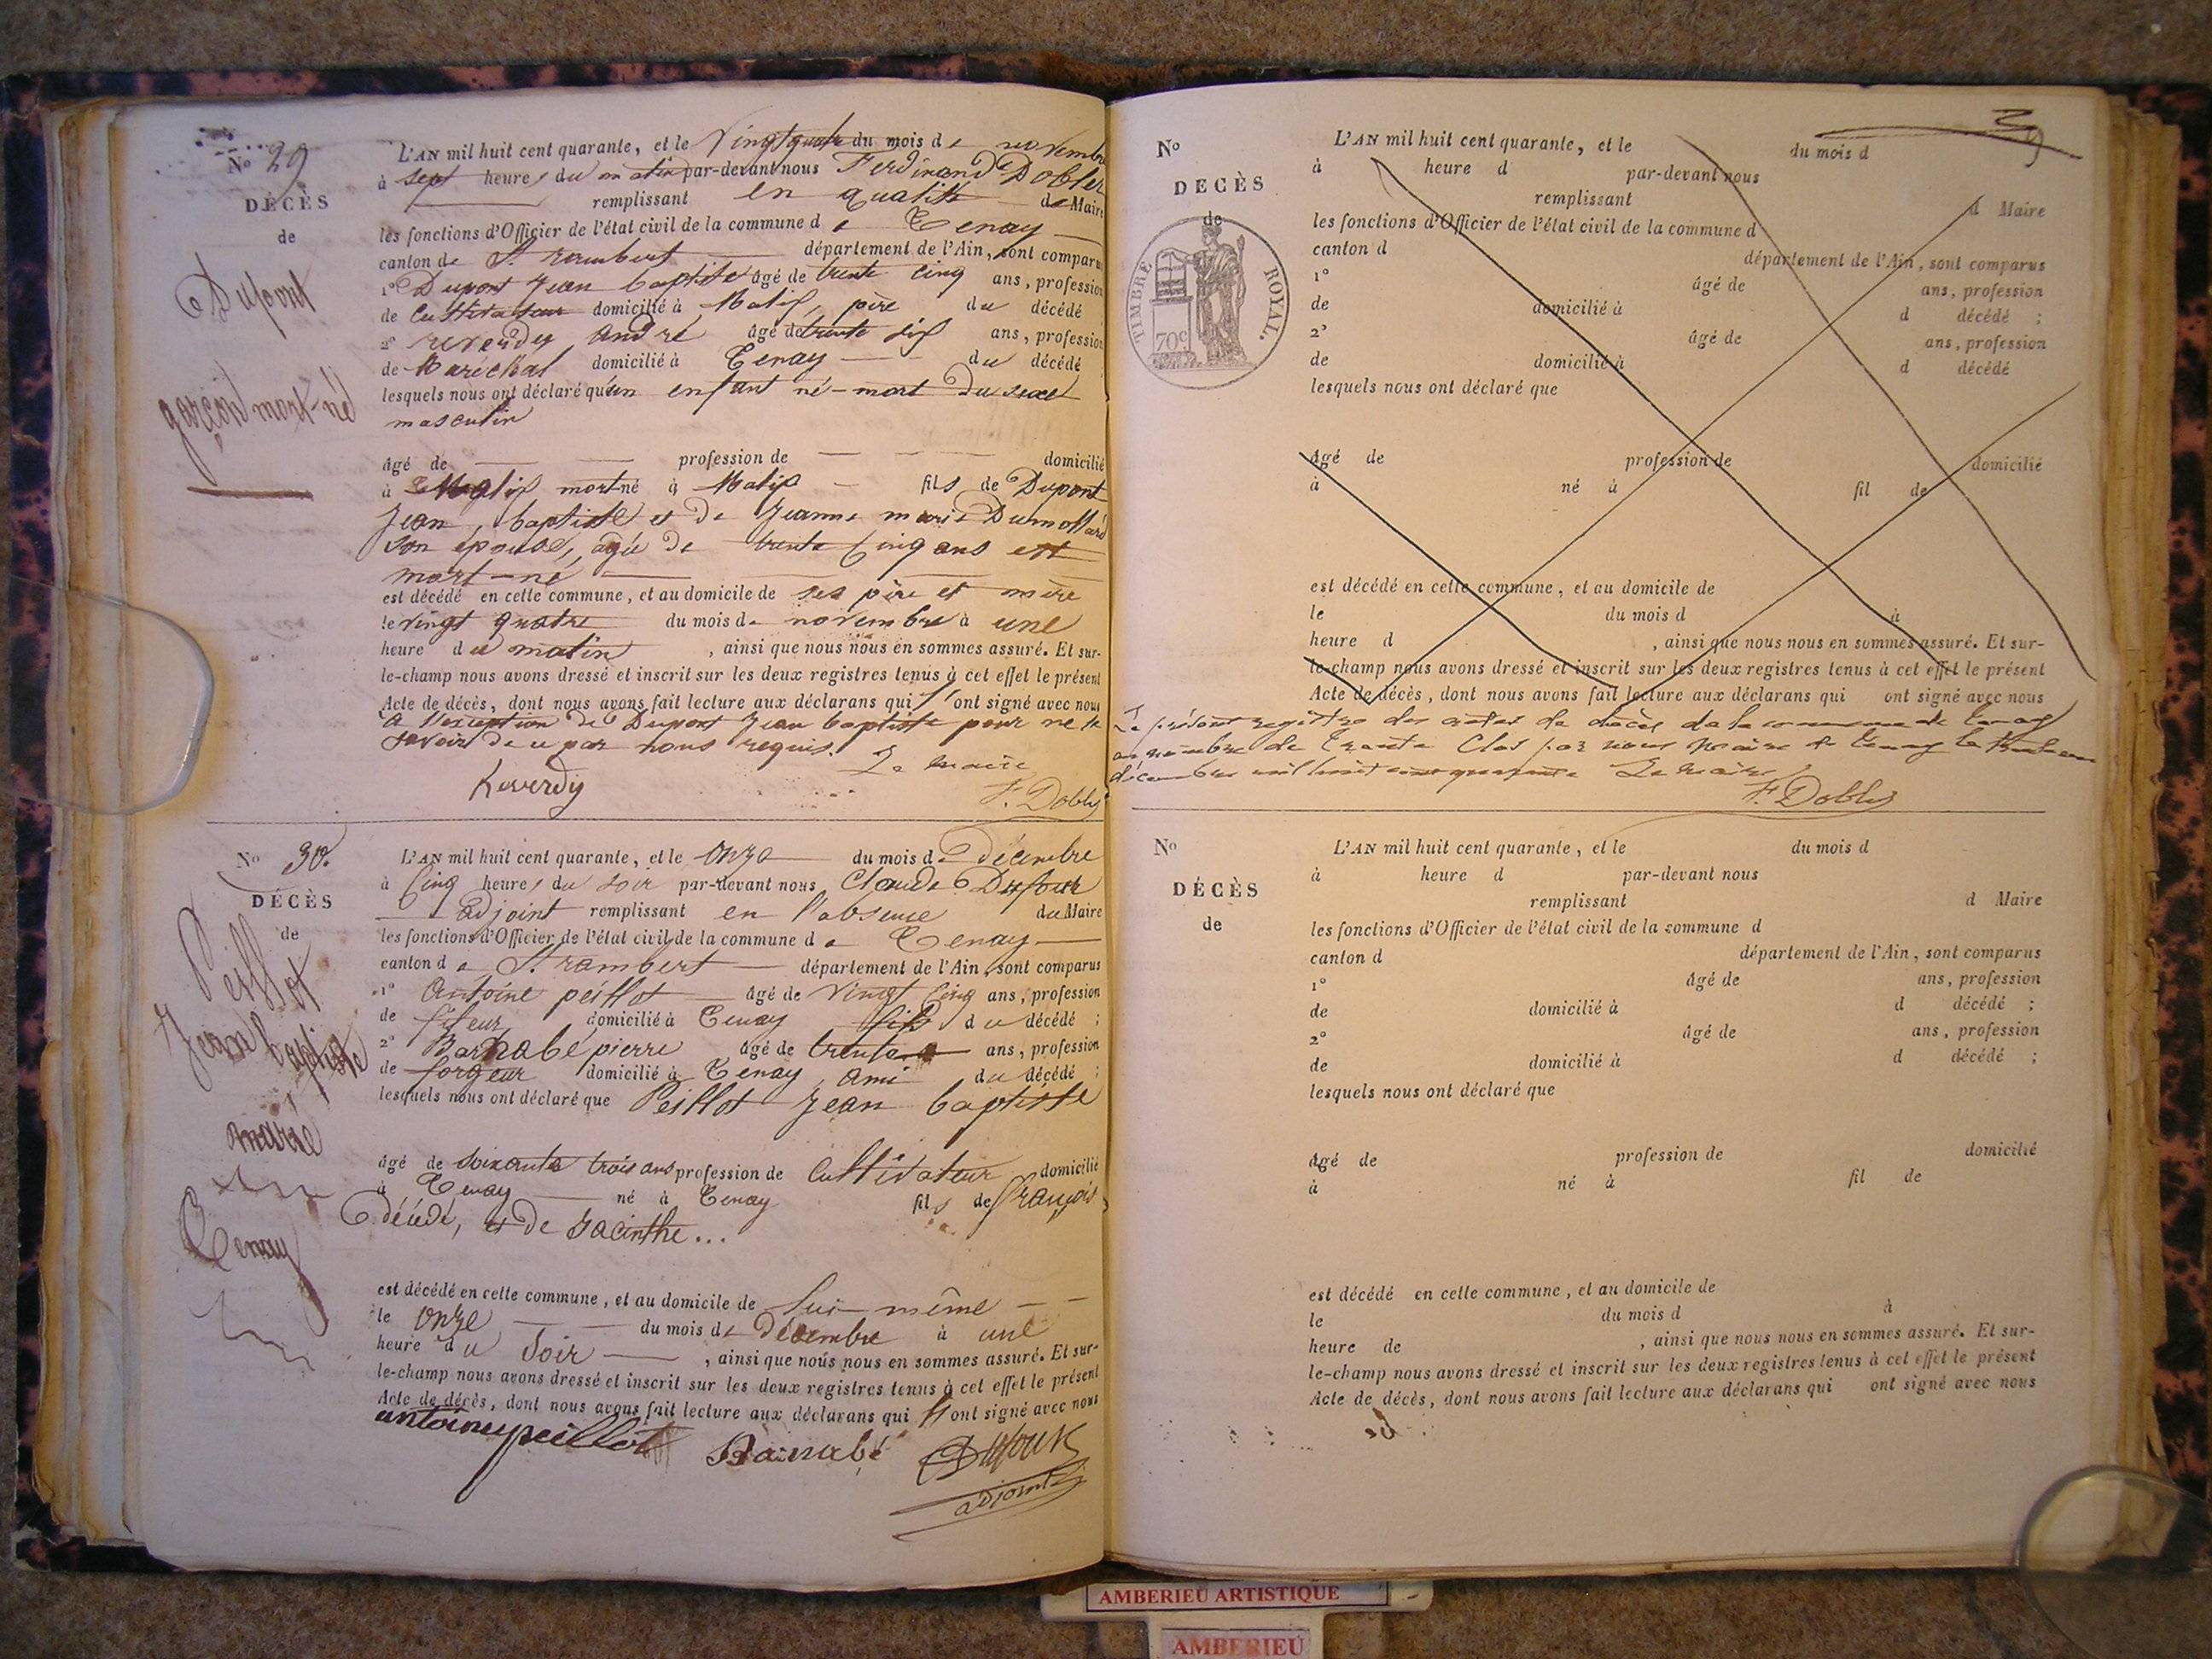 No 29
DÉCÈS
de
Dupont
garçon mort-né
L'AN mil huit cent quarante, et le Vingt quatre du mois de novembre
à sept heures du matin par-devant nous Ferdinand Dobler
remplissant en qualité de Maire
les fonctions d'Officier de l'état civil de la commune de Tenay
canton de St rambert département de l'Ain, sont comparus
1º Dupont Jean baptiste âgé de trente cinq ans, profession
de Cultivateur domicilié à Malix, père du décédé
2º reverdy André âgé de trente six ans, profession
de Maréchal domicilié à Tenay du décédé
lesquels nous ont déclaré qu'un enfant né-mort du sexe
masculin
âgé de profession de domicilié
à Malix mort né à Malix fils de Dupont
Jean, baptiste et de Jeanne marie Dumollard
son épouse, agée de trente Cinq ans est
mort-né
est décédé en cette commune, et au domicile de ses père et mère
le vingt quatre du mois de novembre à une
heure du matin, ainsi que nous nous en sommes assuré. Et sur-
le-champ nous avons dressé et inscrit sur les deux registres tenus à cet effet le présent
Acte de décès, dont nous avons fait lecture aux déclarans qui ont signé avec nous
a l'exception de Dupont Jean baptiste pour ne le
savoir de ce par nous requis.
Le maire
Reverdy F. Dobler
No 30.
DÉCÈS
de
Peillot
Jean baptiste
marié
Tenay
L'AN mil huit cent quarante, et le onze du mois de décembre
à Cinq heures du soir par-devant nous Claude Dufour
adjoint remplissant en l'absence du Maire
les fonctions d'Officier de l'état civil de la commune de Tenay
canton de St. rambert département de l'Ain, sont comparus
1º Antoine peillot âgé de vingt Cinq ans, profession
de domicilié à Tenay fils du décédé ;
2º Barnabé pierre âgé de trente ans, profession
de forgeur domicilié à Tenay, ami du décédé ;
lesquels nous ont déclaré que Peillot Jean baptiste
âgé de soixante trois ans profession de Cultivateur domicilié
à Tenay né à Tenay fils de françois
décédé, et de Jacinthe...
est décédé en cette commune, et au domicile de lui-même
le onze du mois de décembre à une
heure du soir, ainsi que nous nous en sommes assuré. Et sur-
le-champ nous avons dressé et inscrit sur les deux registres tenus à cet effet le présent
Acte de décès, dont nous avons fait lecture aux déclarans qui ont signé avec nous
antoine peillot Barnabé Dufour
adjoint
No
DECÈS
de
TIMBRE ROYAL.
70c
L'AN mil huit cent quarante, et le du mois d
à heure d par-devant nous
remplissant d Maire
les fonctions d'Officier de l'état civil de la commune d
canton d département de l'Ain, sont comparus
1º âgé de ans, profession
de domicilié à d décédé ;
2º âgé de ans, profession
de domicilié à d décédé
lesquels nous ont déclaré que
âgé de profession de domicilié
à né à fil de
est décédé en cette commune, et au domicile de
le du mois d à
heure d , ainsi que nous nous en sommes assuré. Et sur-
le-champ nous avons dressé et inscrit sur les deux registres tenus à cet effet le présent
Acte de décès, dont nous avons fait lecture aux déclarans qui ont signé avec nous
Le présent registre des actes de décès de la commune de Tenay
au nombre de Trente Clos par nous Maire de Tenay le
décembre mil huit cent quarante Le maire
F. Dobler
No
DÉCÈS
de
L'AN mil huit cent quarante, et le du mois d
à heure d par-devant nous
remplissant d Maire
les fonctions d'Officier de l'état civil de la commune d
canton d département de l'Ain, sont comparus
1º âgé de ans, profession
de domicilié à d décédé ;
2º âgé de ans, profession
de domicilié à d décédé ;
lesquels nous ont déclaré que
âgé de profession de domicilié
à né à fil de
est décédé en cette commune, et au domicile de
le du mois d à
heure de , ainsi que nous nous en sommes assuré. Et sur-
le-champ nous avons dressé et inscrit sur les deux registres tenus à cet effet le présent
Acte de décès, dont nous avons fait lecture aux déclarans qui ont signé avec nous
AMBERIEU ARTISTIQUE
AMBERIEU